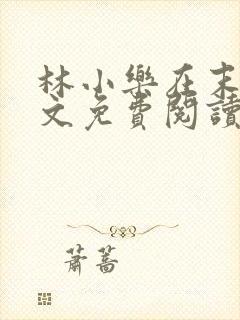 林小樂在末
文免費閱讀
蕭蒿